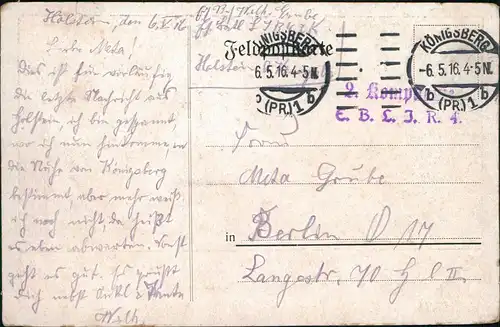 Holstein, den 6.V.16
Liebe Meta!
Das ist für vorläufig
die letzte Nachricht aus
Holstein, ich bin gespannt,
wo ich nun hinkomme, in
die Nähe von Königsberg
bestimmt, aber mehr weiß
ich noch nicht, da heißt
es eben abwarten. Sonst
geht es gut. Es grüßt
Dich nebst Onkl & Tante
Wilh.
Wilh. Grube
Holstein
Feldpostkarte
KÖNIGSBERG
6.5.16.4-5N.
(PR.) 1 b
KÖNIGSBERG
-6.5.16.4-5N.
b (PR.) 1 b
2. Komp.
E. B. L. I. R. 4.
Meta Grube
in Berlin O 17
Langestr. 70 H I II